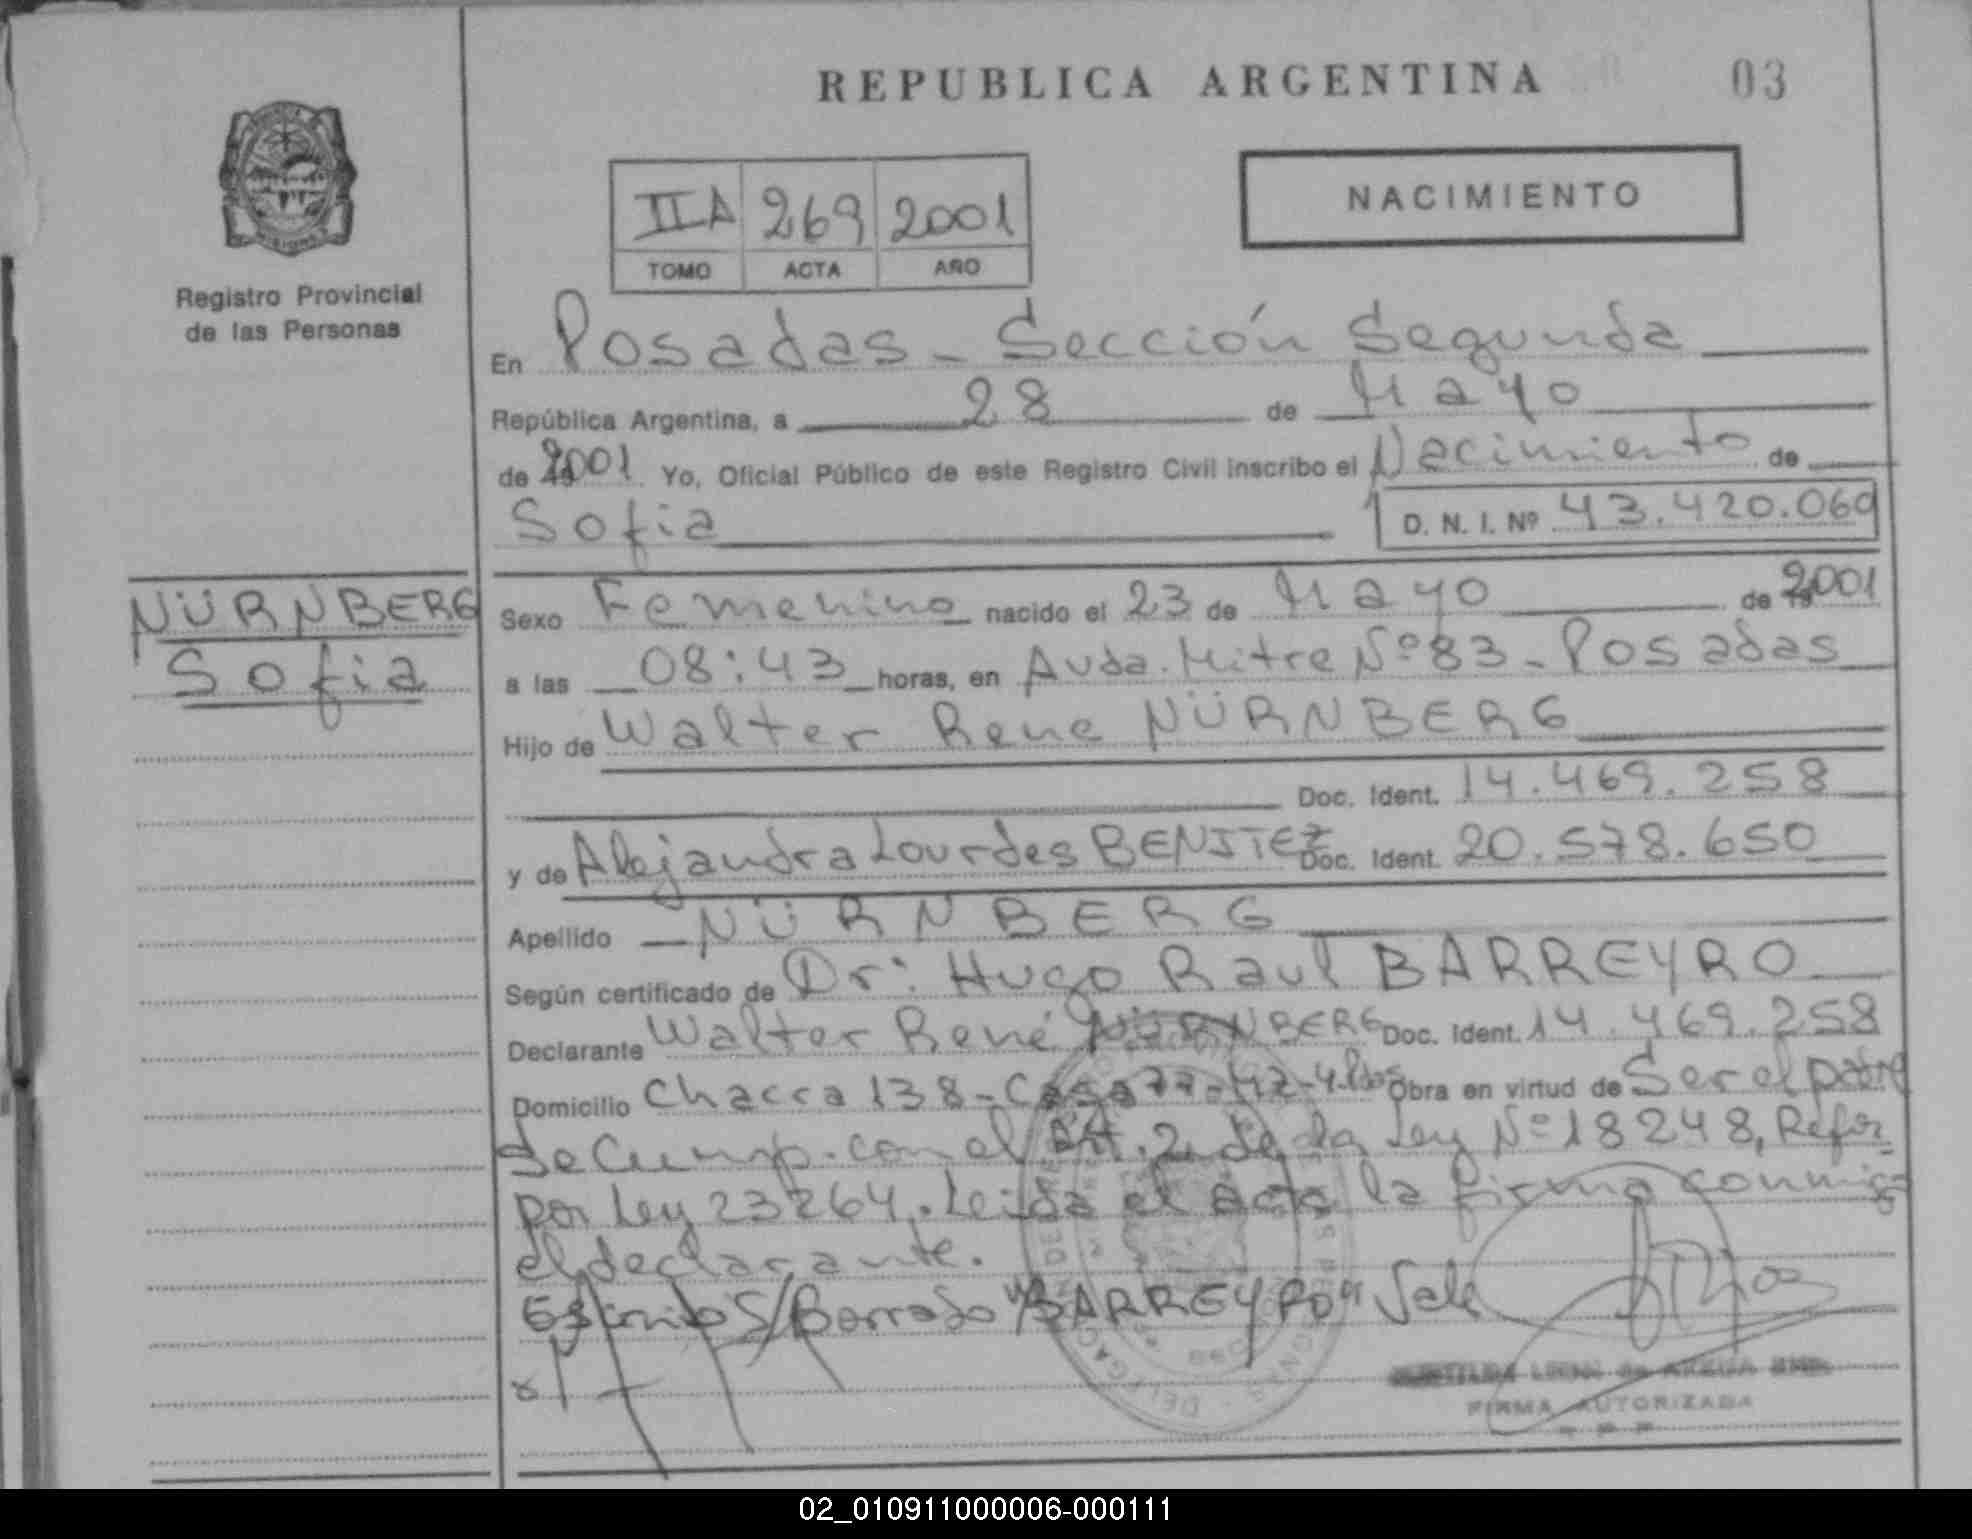 REPUBLICA ARGENTINA 03
NACIMIENTO
IIA 269 2001
TOMO ACTA AÑO
Registro Provincial
de las Personas
En Posadas - Sección Segunda
República Argentina, a 28 de Mayo
de 2001 Yo, Oficial Público de este Registro Civil inscribo el Nacimiento de
Sofia D. N. I. Nº 43.420.069
NÜRNBERG
Sofia
Sexo Femenino nacido el 23 de Mayo de 2001
a las 08:43 horas, en Avda. Mitre Nº 83 - Posadas
Hijo de Walter Rene NÜRNBERG
Doc. Ident. 14.469.258
y de Alejandra Lourdes BENITEZ Doc. Ident. 20.578.650
Apellido NÜRNBERG
Según certificado de Dr. Hugo Raul BARREYRO
Declarante Walter René NÜRNBERG Doc. Ident. 14.469.258
Domicilio Chacra 138 - Casa 77 - Mz - 4. Pdas Obra en virtud de Ser el padre
Se Cump. con el Art. 2 de la Ley Nº 18248, Refor.
por Ley 23264. Leida el acta la firma conmigo
el declarante.
S/Borrado "BARREYRO" Vale
FIRMA AUTORIZADA
02_010911000006-000111